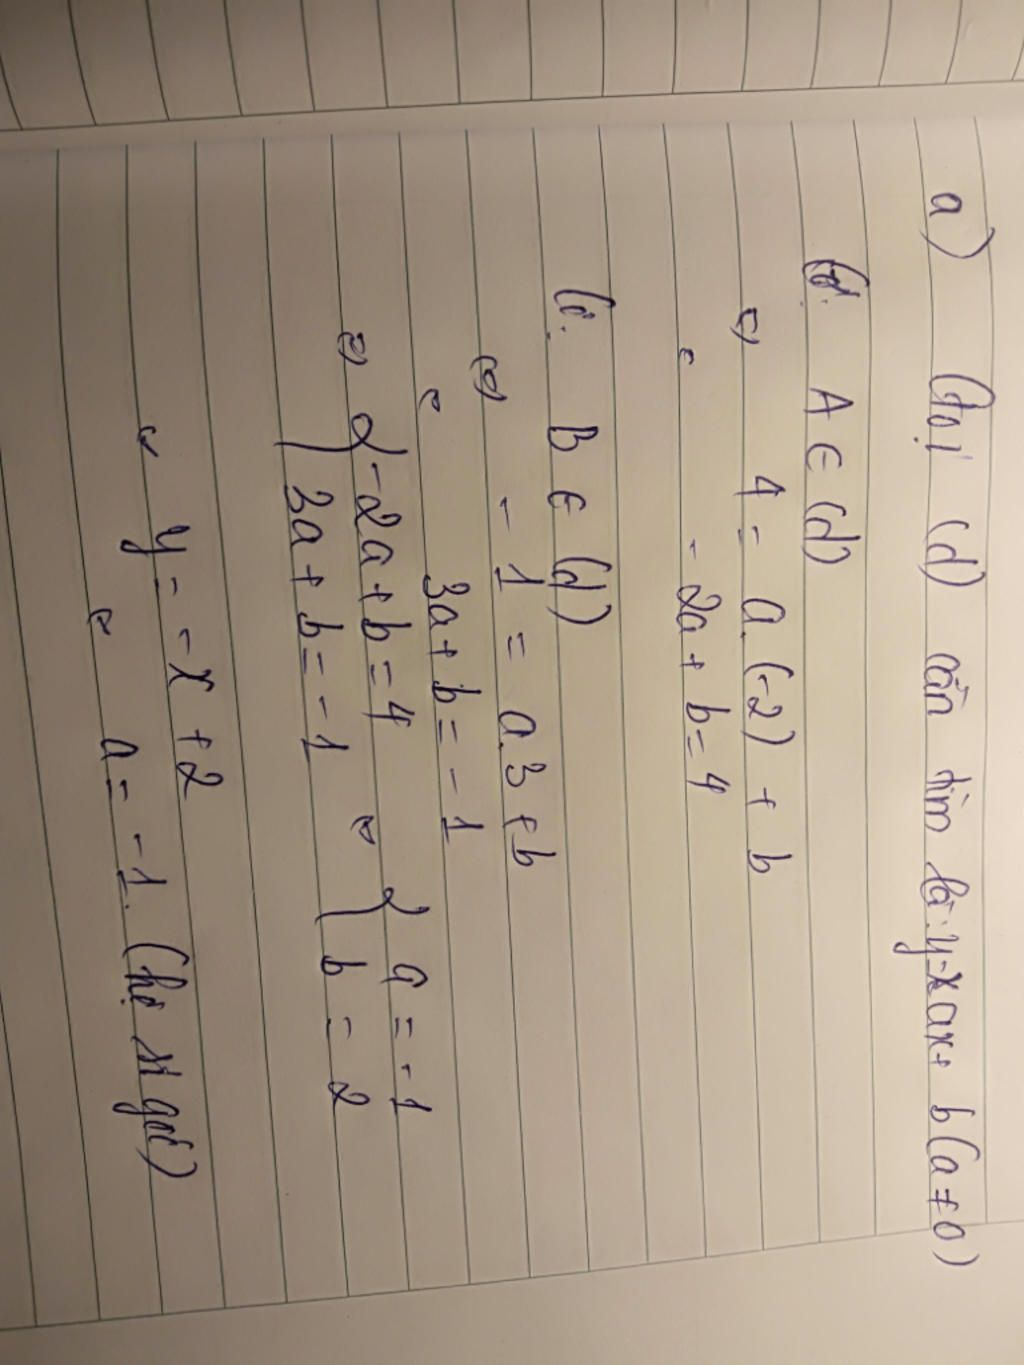 a) Gọi (d) cần tìm là: y = ax + b (a ≠ 0)
Có: A ∈ (d)
⇔ 4 = a.(-2) + b
⇔ - 2a + b = 4
Có: B ∈ (d)
⇔ - 1 = a.3 + b
⇔ 3a + b = - 1
⇔ { -2a + b = 4 ⇔ { a = -1
{ 3a + b = - 1 { b = 2
⇔ y = -x + 2
⇔ a = - 1. (hệ số góc)